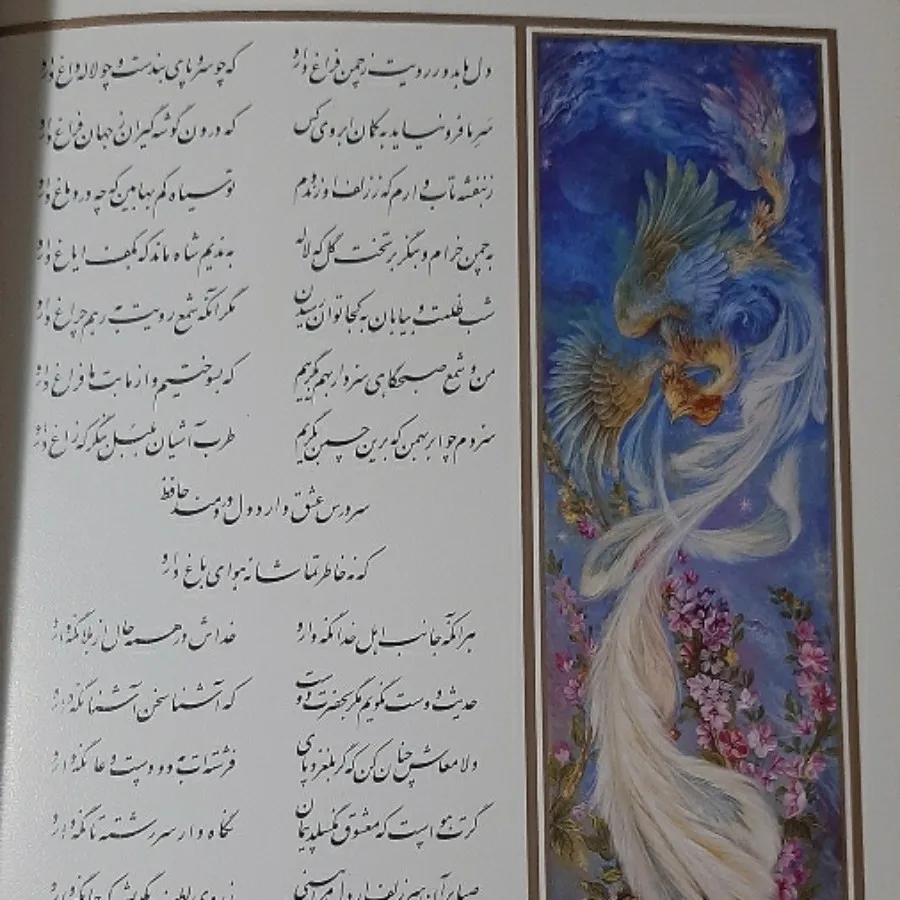 دل ما بدور رویت ز چمن فراغ دارد که چو سرو پای بندست و چو لاله داغ دارد
سرِ ما فرو نیاید به کمان ابروی کس که درون گوشه گیران ز جهان فراغ دارد
ز بنفشه تاب دارم که ز زلف او زند دم تو سیاه کم بها بین که چه در دماغ دارد
به چمن خرام و بنگر بر تخت گل که لاله به ندیم شاه ماند که بکف ایاغ دارد
شب ظلمت و بیابان به کجا توان رسیدن مگر آنکه شمع رویت به رهم چراغ دارد
من و شمع صبحگاهی سزد ار بهم بگرییم که بسوختیم و از ما بت ما فراغ دارد
سزدم چو ابر بهمن که برین چمن بگریم طرب آشیان بلبل بنگر که زاغ دارد
سر درس عشق دارد دل دردمند حافظ
که نه خاطر تماشا نه هوای باغ دارد
هر آنکه جانب اهل خدا نگه دارد خداش در همه حال از بلا نگه دارد
حدیث دوست نگویم مگر بحضرت دوست که آشنا سخن آشنا نگه دارد
دلا معاش چنان کن که گر بلغزد پای فرشته ات به دو دست دعا نگه دارد
گرت هواست که معشوق نگسلد پیمان نگاه دار سر رشته تا نگه دارد
صبا بر آن سر زلف ار دل مرا بینی ز روی لطف بگویش که جا نگه دارد